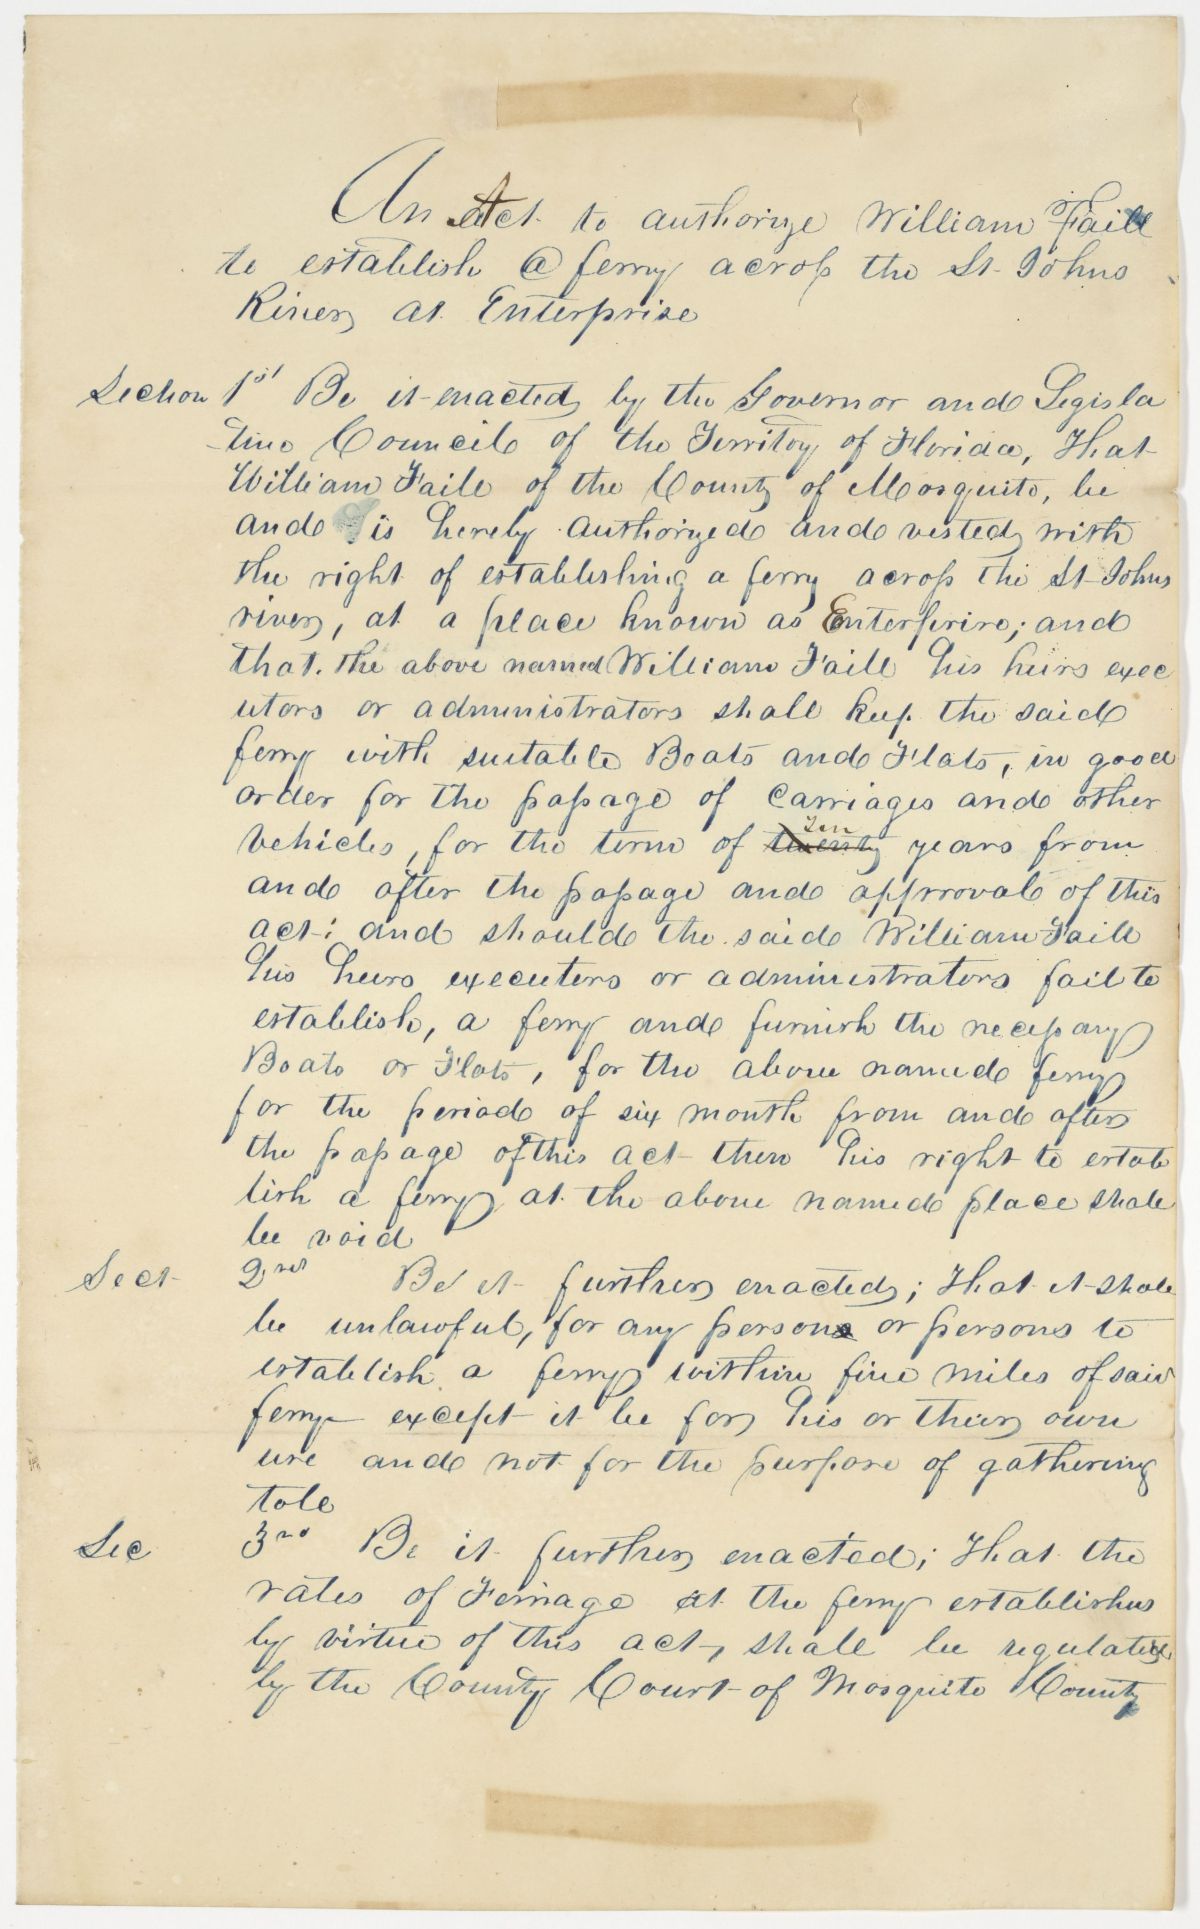 An Act to authorize William Faill
to establish a ferry across the St Johns
River, at Enterprise
Section 1st Be it enacted by the Governor and Legisla
-tive Council of the Territoy of Florida, That
William Faill of the County of Mosquito, be
and is hereby authorized and vested with
the right of establishing a ferry across the St Johns
river, at a place known as Enterprise; and
that the above named William Faill his heirs exec
utors or administrators shall keep the said
ferry with suitable Boats and Flats, in good
order for the passage of carriages and other
vehicles, for the term of twenty Ten years from
and after the passage and approval of this
act; and should the said William Faill
his heirs executers or administrators fail to
establish, a ferry and furnish the necessary
Boats or Flats, for the above named ferry
for the period of six month from and after
the passage of this act then his right to estab
lish a ferry at the above named place shall
be void
Sect 2nd Be it further enacted; That it shall
be unlawful, for any person or persons to
establish a ferry within five miles of said
ferry except it be for his or their own
use and not for the purpose of gathering
tole
Sec 3rd Be it further enacted; That the
rates of Ferriage at the ferry establishes
by virtue of this act, shall be regulated
by the County Court of Mosquito County